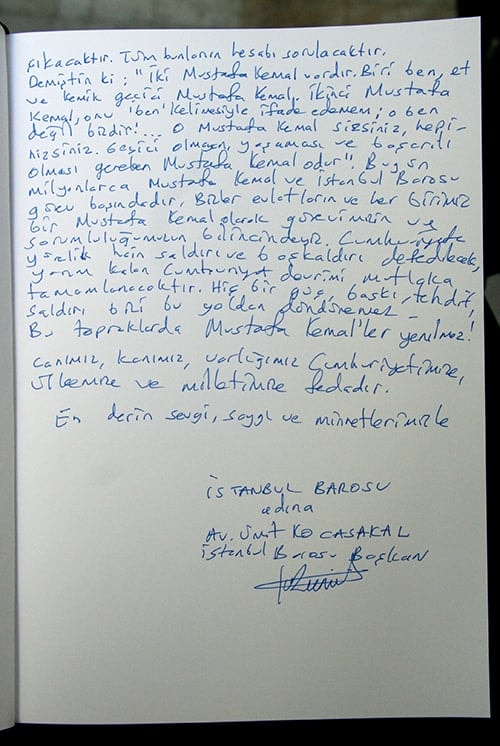 çıkacaktır. Tüm bunların hesabı sorulacaktır.
Demiştin ki ; "İki Mustafa Kemal vardır. Biri ben, et
ve kemik geçici Mustafa Kemal. İkinci Mustafa
Kemal, onu 'ben' kelimesiyle ifade edemem ; o ben
değil bizdir!... O Mustafa Kemal sizsiniz, hepi-
nizsiniz. Geçici olmayan, yaşaması ve başarılı
olması gereken Mustafa Kemal odur". Bugün
milyonlarca Mustafa Kemal ve İstanbul Barosu
görev başındadır. Bizler evlatların ve her birimiz
bir Mustafa Kemal olarak görevimizin ve
sorumluluğumuzun bilincindeyiz. Cumhuriyete
yönelik hain saldırı ve başkaldırı defedilecek,
yarım kalan Cumhuriyet devrimi mutlaka
tamamlanacaktır. Hiç bir güç, baskı, tehdit,
saldırı bizi bu yoldan döndüremez.
Bu topraklarda Mustafa Kemal'ler yenilmez!
Canımız, kanımız, varlığımız Cumhuriyetimize,
ülkemize ve milletimize fedadır.
En derin sevgi, saygı ve minnetlerimizle
İSTANBUL BAROSU
adına
Av. Ümit KOCASAKAL
İstanbul Barosu Başkanı